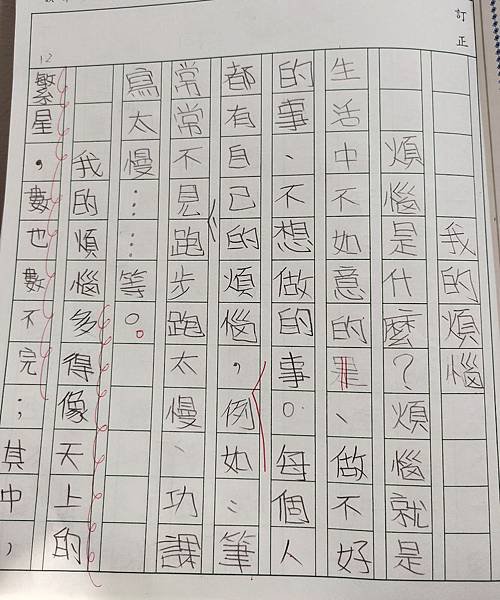 訂正
我的煩惱
煩惱是什麼？煩惱就是
生活中不如意的、做不好
的事、不想做的事。每個人
都有自己的煩惱，例如：筆
常常不見跑步跑太慢、功課
寫太慢……等。
我的煩惱多得像天上的
12
繁星，數也數不完；其中，